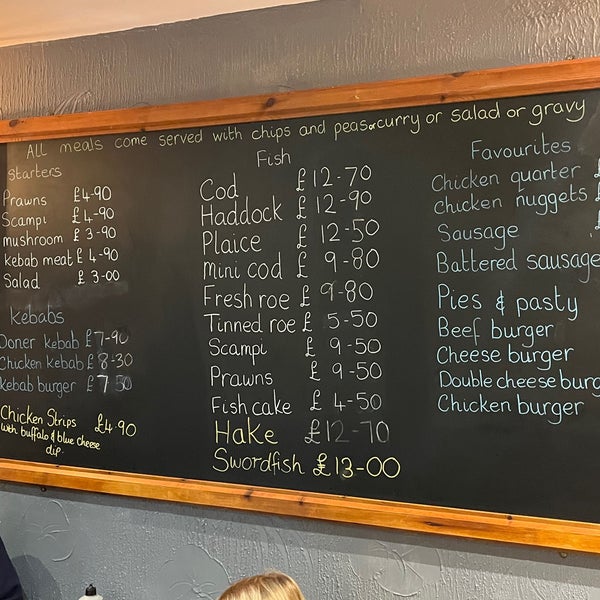 All meals come served with chips and peas or curry or salad or gravy
Starters
Prawns £4-90
Scampi £4-90
mushroom £3-90
kebab meat £4-90
Salad £3-00
Kebabs
Doner kebab £7-90
Chicken kebab £8-30
kebab burger £7 50
Chicken Strips £4.90
with buffalo & blue cheese
dip.
Fish
Cod £12-70
Haddock £12-90
Plaice £12-50
mini cod £9-80
Fresh roe £9-80
Tinned roe £5-50
Scampi £9-50
Prawns £9-50
Fish cake £4-50
Hake £12-70
Swordfish £13-00
Favourites
Chicken quarter £
chicken nuggets £
Sausage £
Battered sausage
Pies & pasty
Beef burger
Cheese burger
Double cheese burg
Chicken burger